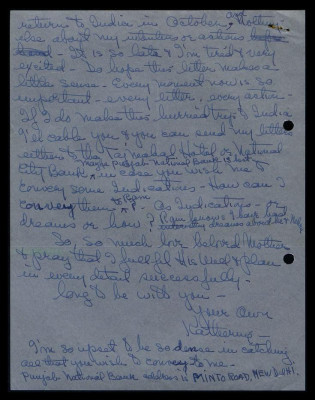 return to India in October, and Mother
else about my intuitions or actions
It is so late & I'm tired & very
excited - Do hope this letter makes a
little sense - Every moment now is so
important - every letter, every action -
If I do make this hurried trip to India
I'll cable you & you can send my letters
either to the Taj Mahal Hotel or National
City Bank, maybe Punjab National Bank is best
in case you wish me to
convey some Indications - How can I
convey them to Pan? - As Indications - or
dreams or how? Pan knows I have had
dreams about her &
So, so much love beloved Mother
& pray that I fulfill His Will & plan
in every detail successfully -
Long to be with you -
Your own
Katherine -
I'm so upset to be so dense in catching
all that you wish to convey to me -
Punjab National Bank address is P MINTO ROAD, NEW DELHI.